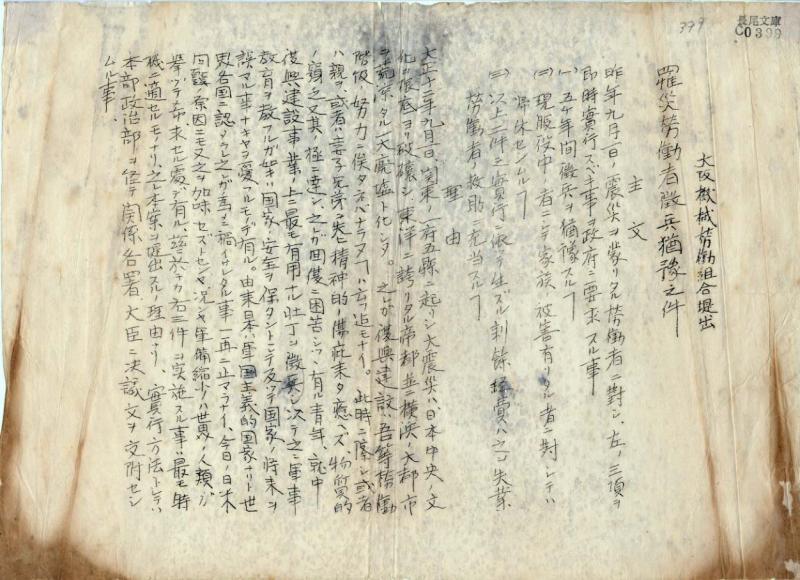 長尾文庫
C0399
399
大阪機械労働組合提出
罹災労働者徴兵猶予之件
主文
昨年九月一日ノ震災ヲ蒙リタル労働者ニ対シ、左ノ三項ヲ
即時実行スベキ事ヲ政府ニ要求スル事
(一)五ケ年間徴兵ヲ猶豫スルヿ
(二)現服役中ノ者ニシテ家族ノ被害有リタル者ニ対シテハ
帰休センムルヿ
(三)以上二件ノ実行ニ依テ生ズル剰餘経費ハ之ヲ失業
労働者ノ救助ニ充当スルヿ
理由
大正十二年九月一日、関東ノ一府五縣ニ起リシ大震災ハ日本中央ノ文
化ヲ根底ヨリ破壊シ、東洋ニ誇リタル帝都並ニ横浜ノ大都市
ヲ荒涼タル一大廃墟ト化シタ。之レガ復興建設ハ吾等労働
階級ノ努力ニ俟タネバナラヌヿハ云フ迄モナイ。此時ニ際シ或者
ハ親ヲ、或者ハ妻子兄弟ヲ失ヒ精神的ノ傷痍未タ癒ヘズ、物質的
ノ窮乏又其ノ極ニ達シ、之レガ回復ニ困苦シツヽ有ル青年、就中
復興建設事業ノ上ニ最モ有用ナル壮丁ヲ徴兵シ次テ之ニ軍事
教育ヲ教フルガ如キハ国家ノ安全ヲ保タントシテ反ツテ国家ノ将来ヲ
誤マル事ナキヤヲ憂フルモノデ有ル。由来日本ハ軍国主義的国家ナリト世
界各国ニ認メラレ之レガ為メ禍イサレタル事一再ニ止マラナイ、今日ノ日米
問題ノ原因ニモ又之ヲ加味セズトセンヤ況ンヤ軍備縮少ハ世界ノ人類ノ
挙ツテ希求セル處デ有ル、茲ニ於テカ右三件ヲ実施スル事ハ最モ時
機ニ適セルモノナリ、之レ本案ヲ提出スル理由ナリ、実行方法トシテハ
本部政治部ヲ経テ関係各署ノ大臣ニ決議文ヲ交附セシ
ムル事、